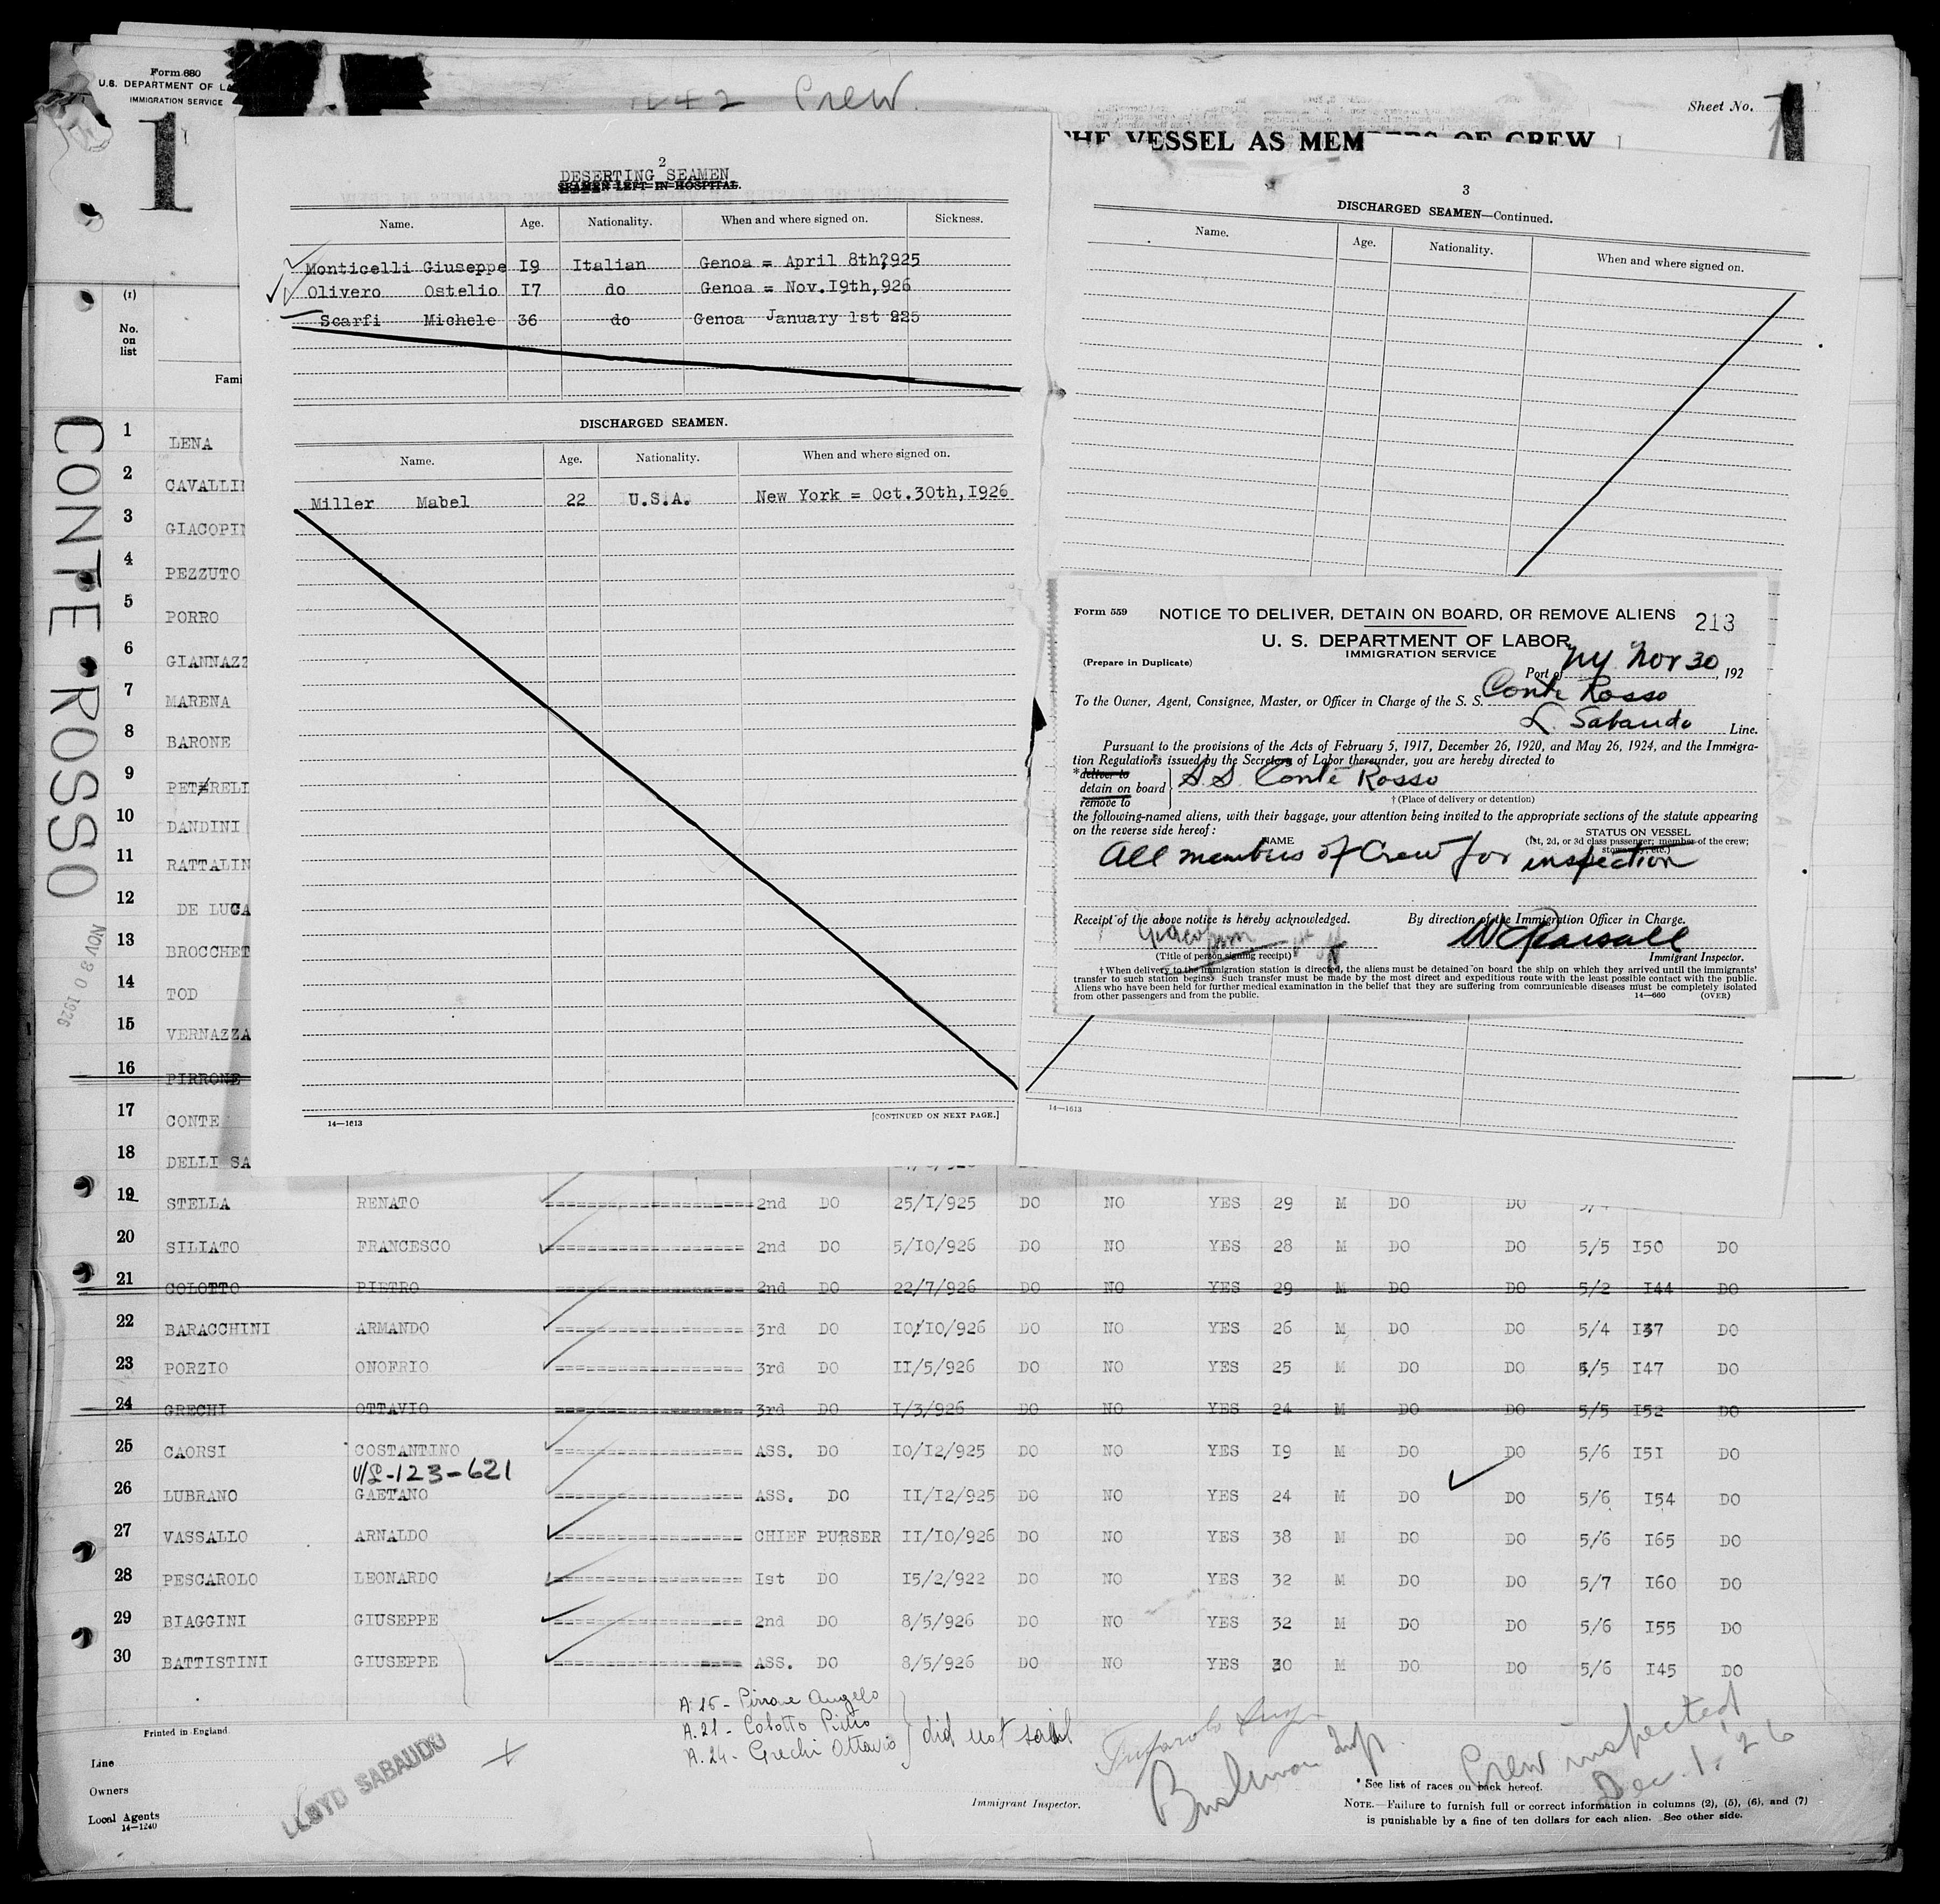 Form 680
U.S. DEPARTMENT OF LA
IMMIGRATION SERVICE
Crew.
Sheet No.
1
THE VESSEL AS MEMBERS OF CREW
2
DESERTING SEAMEN
SEAMEN LEFT IN HOSPITAL.
Name. Age. Nationality. When and where signed on. Sickness.
Monticelli Giuseppe I9 Italian Genoa = April 8th?925
Olivero Ostelio I7 do Genoa = Nov.I9th,926
Scarfi Michele 36 do Genoa January 1st 925
DISCHARGED SEAMEN.
Name. Age. Nationality. When and where signed on.
Miller Mabel 22 U.S.A. New York = Oct.30th,I926
[CONTINUED ON NEXT PAGE.]
14—1613
3
DISCHARGED SEAMEN—Continued.
Name. Age. Nationality. When and where signed on.
14—1613
Form 559 NOTICE TO DELIVER, DETAIN ON BOARD, OR REMOVE ALIENS 213
U. S. DEPARTMENT OF LABOR
IMMIGRATION SERVICE
(Prepare in Duplicate)
Port of NY Nov 30, 192
To the Owner, Agent, Consignee, Master, or Officer in Charge of the S. S. Conte Rosso
L. Sabaudo Line.
Pursuant to the provisions of the Acts of February 5, 1917, December 26, 1920, and May 26, 1924, and the Immigra-
tion Regulations issued by the Secretary of Labor thereunder, you are hereby directed to
*deliver to
detain on board S.S. Conte Rosso
remove to
†(Place of delivery or detention)
the following-named aliens, with their baggage, your attention being invited to the appropriate sections of the statute appearing
on the reverse side hereof:
NAME STATUS ON VESSEL
(1st, 2d, or 3d class passenger; member of the crew;
stowaway, etc.)
All members of Crew for inspection
Receipt of the above notice is hereby acknowledged. By direction of the Immigration Officer in Charge.
(Title of person signing receipt) Immigrant Inspector.
†When delivery to the immigration station is directed, the aliens must be detained on board the ship on which they arrived until the immigrants'
transfer to such station begins. Such transfer must be made by the most direct and expeditious route with the least possible contact with the public.
Aliens who have been held for further medical examination in the belief that they are suffering from communicable diseases must be completely isolated
from other passengers and from the public. 14—660 (OVER)
CONTE ROSSO
NOV 30 1926
(1)
No.
on
list
Fami
1 LENA
2 CAVALLI
3 GIACOPI
4 PEZZUTO
5 PORRO
6 GIANNAZZ
7 MARENA
8 BARONE
9 PETRELI
10 DANDINI
11 RATTALIN
12 DE LUCA
13 BROCCHET
14 TOD
15 VERNAZZA
16 PIRRONE
17 CONTE
18 DELLI SA
19 STELLA RENATO 2nd DO 25/I/925 DO NO YES 29 M DO DO
20 SILIATO FRANCESCO 2nd DO 5/I0/926 DO NO YES 28 M DO DO 5/5 I50 DO
21 COLOTTO PIETRO 2nd DO 22/7/926 DO NO YES 29 M DO DO 5/2 I44 DO
22 BARACCHINI ARMANDO 3rd DO I0/I0/926 DO NO YES 26 M DO DO 5/4 I37 DO
23 PORZIO ONOFRIO 3rd DO II/5/926 DO NO YES 25 M DO DO 5/5 I47 DO
24 GRECHI OTTAVIO 3rd DO I/3/926 DO NO YES 24 M DO DO 5/5 I52 DO
25 CAORSI COSTANTINO ASS. DO I0/I2/925 DO NO YES I9 M DO DO 5/6 I51 DO
V/L-123-621
26 LUBRANO GAETANO ASS. DO II/I2/925 DO NO YES 24 M DO DO 5/6 I54 DO
27 VASSALLO ARNALDO CHIEF PURSER II/I0/926 DO NO YES 38 M DO DO 5/6 I65 DO
28 PESCAROLO LEONARDO Ist DO I5/2/922 DO NO YES 32 M DO DO 5/7 I60 DO
29 BIAGGINI GIUSEPPE 2nd DO 8/5/926 DO NO YES 32 M DO DO 5/6 I55 DO
30 BATTISTINI GIUSEPPE ASS. DO 8/5/926 DO NO YES 30 M DO DO 5/6 I45 DO
A.16 - Pirrone Angelo
A.21 - Colotto Pietro
A.24 - Grechi Ottavio
did not sail
Printed in England
Line
Owners
Local Agents
14—1240
LLOYD SABAUDO
Immigrant Inspector.
Crew inspected
Dec. 1, '26
* See list of races on back hereof.
NOTE.—Failure to furnish full or correct information in columns (2), (5), (6), and (7)
is punishable by a fine of ten dollars for each alien. See other side.